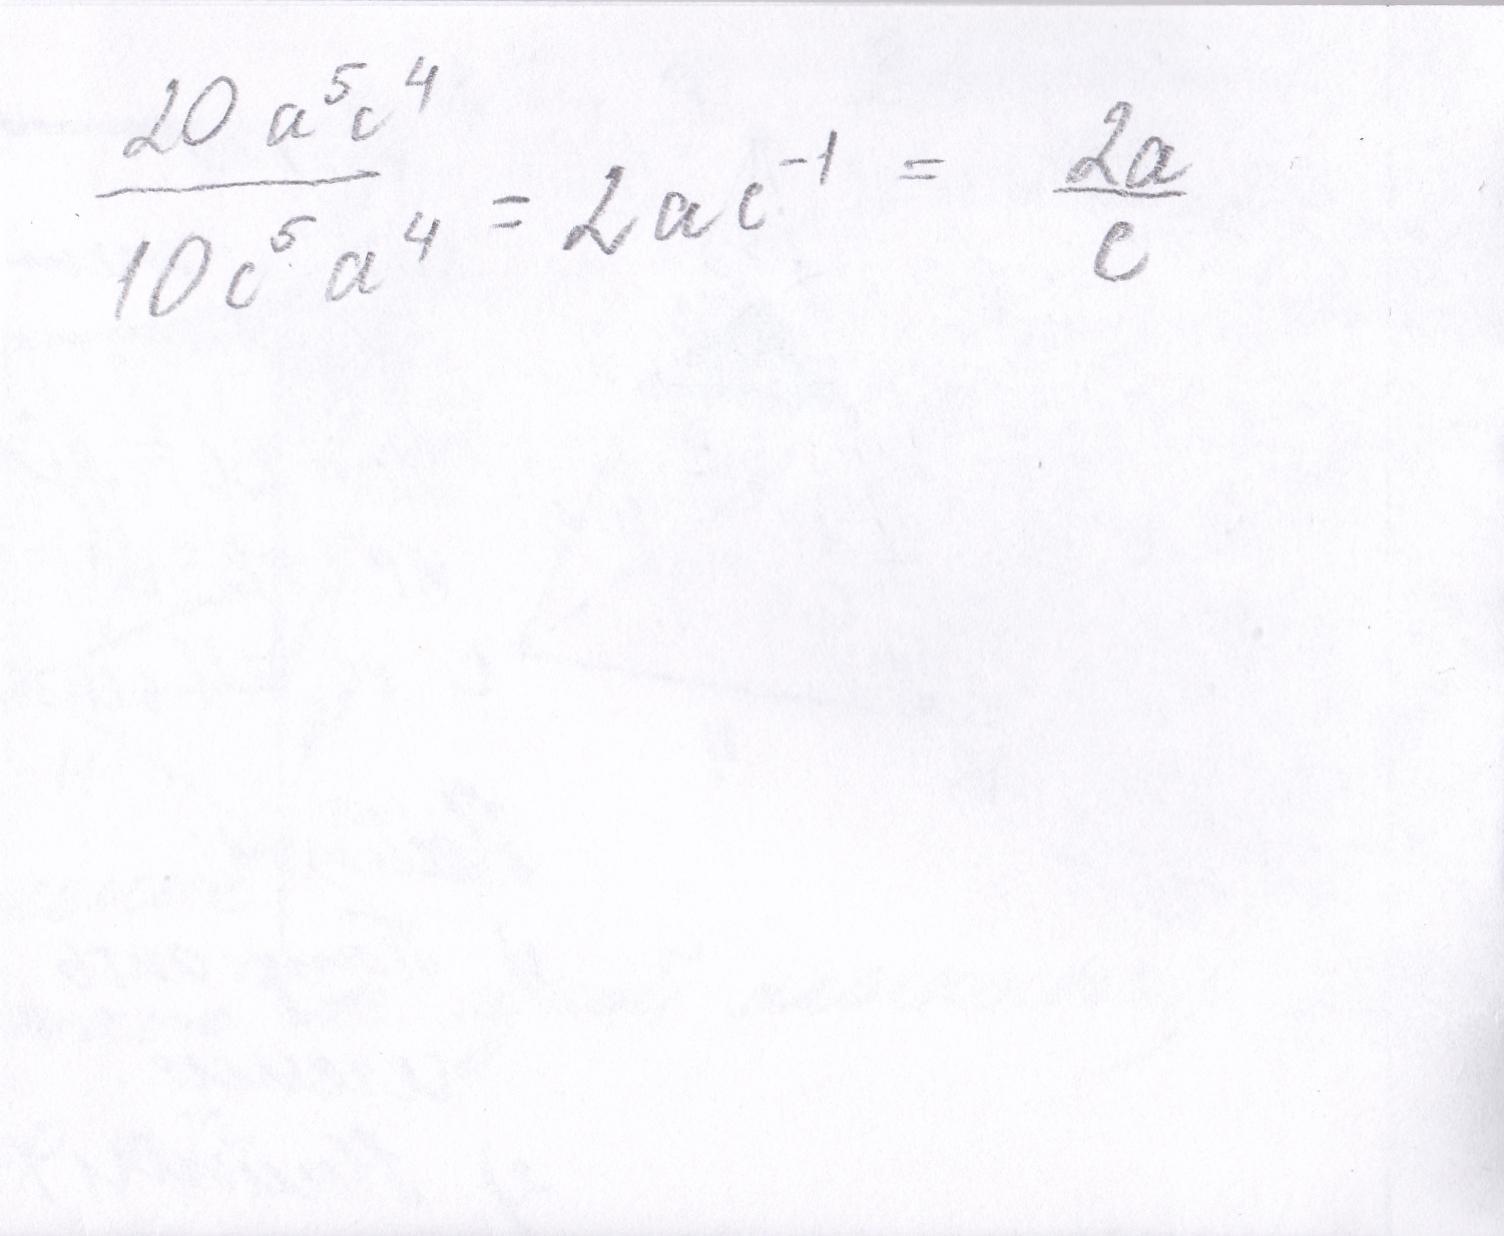 20a⁵c⁴ / 10c⁵a⁴ = 2ac⁻¹ = 2a / c